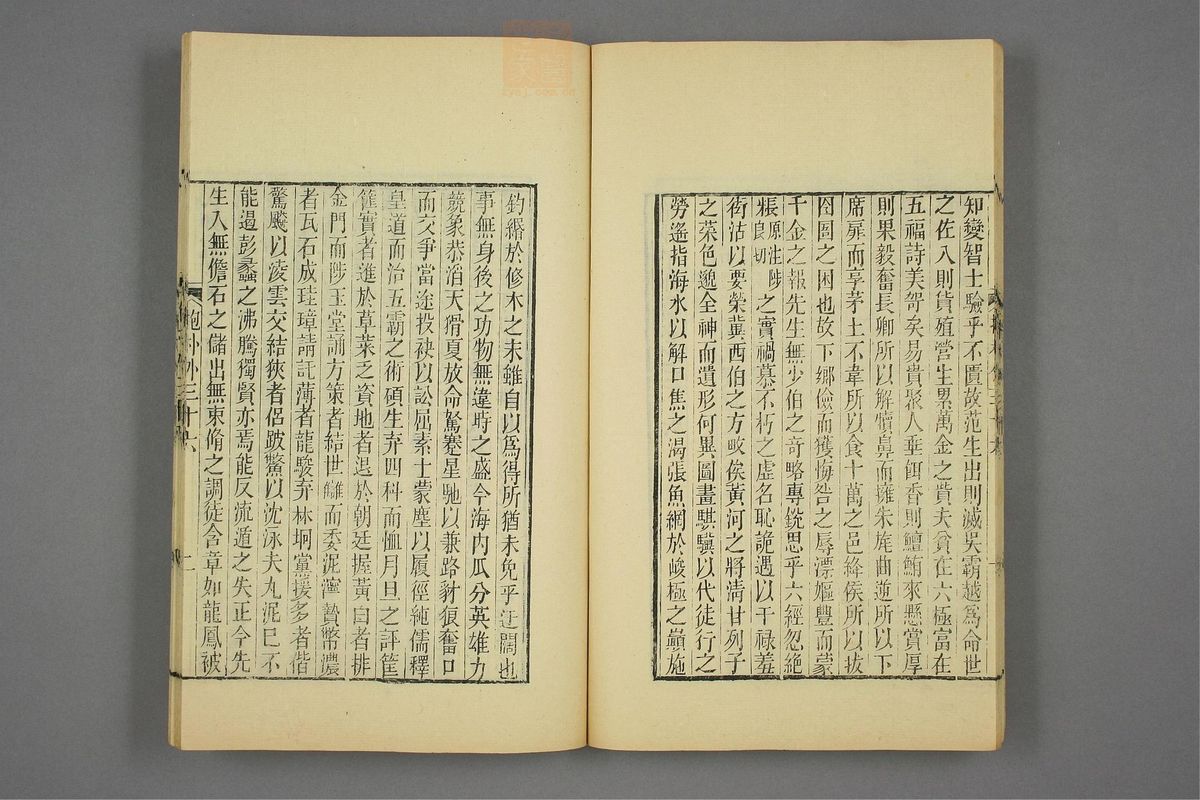 知變智士驗乎不匱故范生出則滅吳霸越爲命世
之佐入則貨殖營生累萬金之貲夫貧在六極富在
五福詩美哿矣易貴聚人垂餌香則鱣鮪來懸賞厚
則果毅奮長卿所以解犢鼻而擁朱旄曲逆所以下
席扉而享茅土不韋所以食十萬之邑絳侯所以拔
囹圄之困也故下鄉儉而獲悔咎之辱漂嫗豐而蒙
千金之報先生無少伯之奇略專銳思乎六經忽絶
粻原注陟良切之實禍慕不朽之虛名恥詭遇以干祿羞
衒沽以要榮冀西伯之方畋俟黃河之將淸甘列子
之菜色邈全神而遺形何異圖畫騏驥以代徒行之
勞遙指海水以解口焦之渴張魚網於峻極之巔施
釣緡於修木之末雖自以爲得所猶未免乎迂闊也
事無身後之功物無違時之盛今海內瓜分英雄力
競象恭滔天猾夏放命駑蹇星馳以兼路豺狼奮口
而交爭當途投袂以訟屈素士蒙塵以履徑純儒釋
皇道而治五霸之術碩生弃四科而恤月旦之評筐
篚實者進於草萊乏資地者退於朝廷握黃白者排
金門而陟玉堂誦方策者結世讎而委泥濘贄幣濃
者瓦石成珪璋請託薄者龍駿弃林坰黨援多者偕
驚飈以凌雲交結狹者侶跛鼈以沈泳夫丸泥已不
能遏彭蠡之沸騰獨賢亦焉能反流遁之失正今先
生入無儋石之儲出無束脩之調徒含章如龍鳳被
抱朴外三十六
二